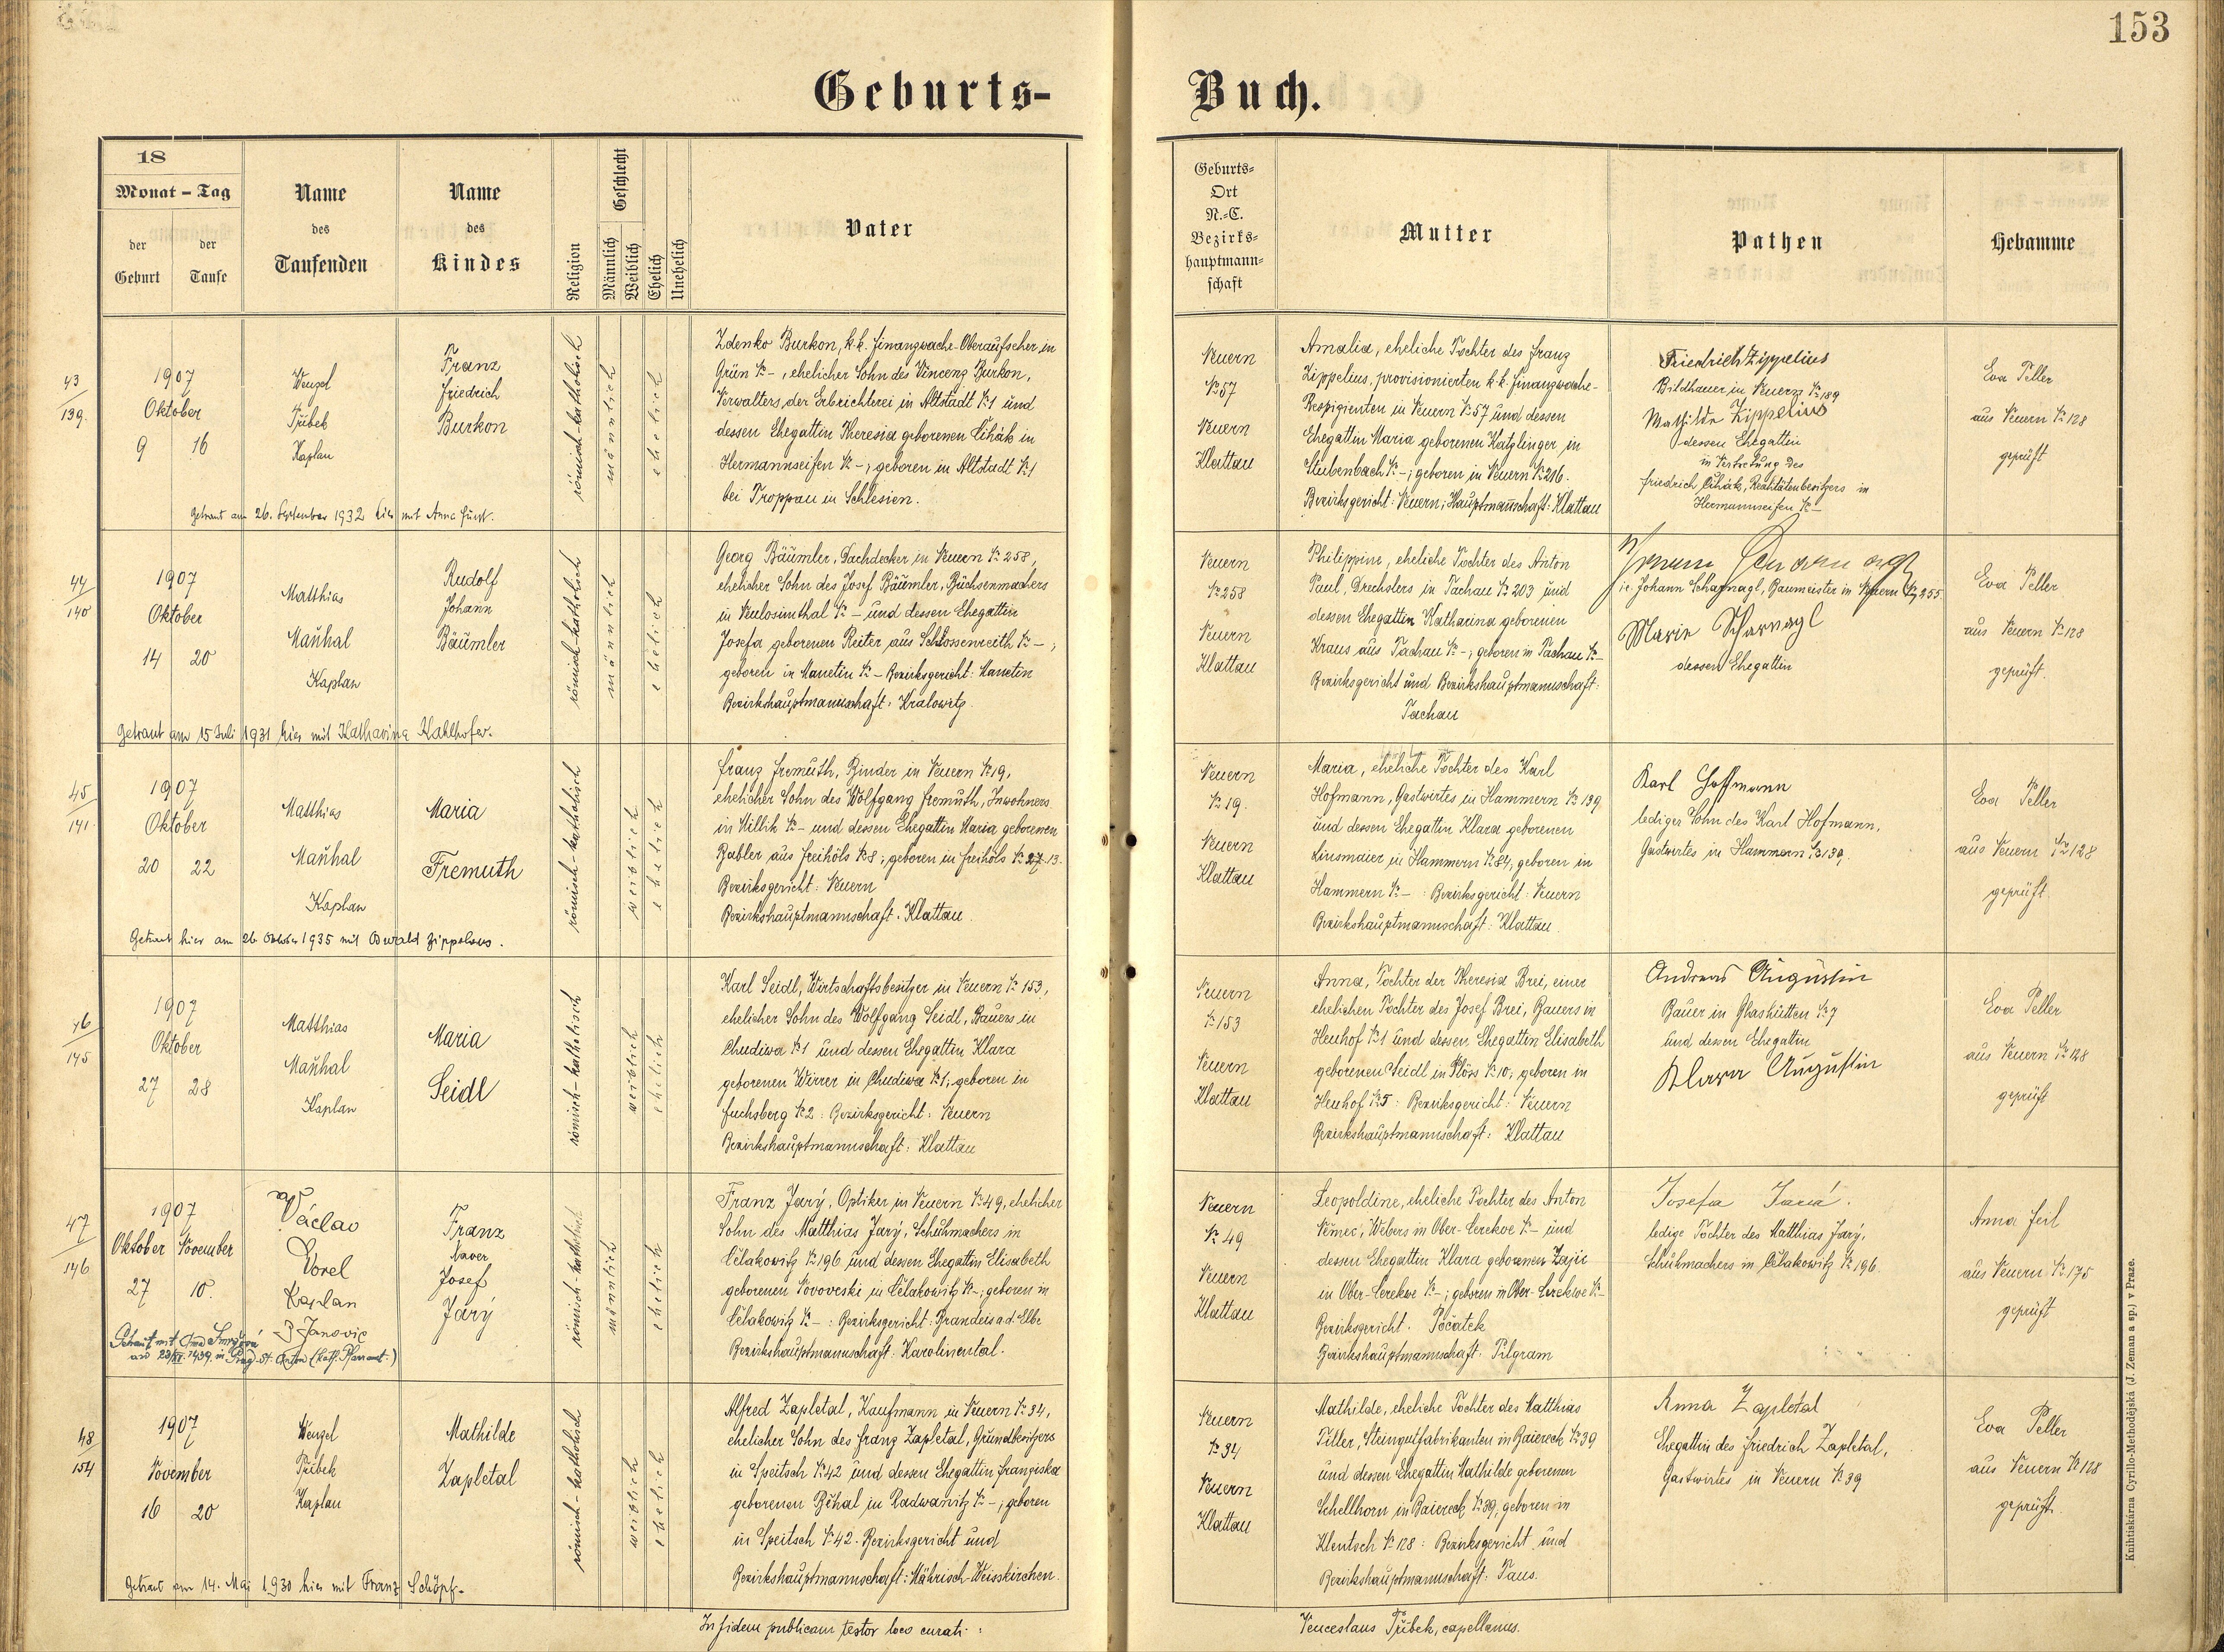 153
Geburts-
Buch.
18
Monat - Tag
der Geburt
der Taufe
Name des Taufenden
Name des Kindes
Religion
Geschlecht
Männlich
Weiblich
Ehelich
Unehelich
Vater
Geburts-
Ort
N.-C.
Bezirks-
hauptmann-
schaft
Mutter
Pathen
Hebamme
43/139.
1907
Oktober
9 16
Wenzel
Tříbek
Kaplan
Franz
Friedrich
Burkon
römisch-katholisch
männlich
ehelich
Zdenko Burkon, k.k. Finanzwache-Oberaufseher in
Grün № –, ehelicher Sohn des Vincenz Burkon,
Verwalters der Erbrichterei in Altstadt № 1 und
dessen Ehegattin Theresia geborenen Čihák in
Hermannseifen № –; geboren in Altstadt № 1
bei Troppau in Schlesien.
Getraut am 26. September 1932 hier mit Anna Fürst.
Neuern
№ 57
Neuern
Klattau
Amalia, eheliche Tochter des Franz
Zippelius, provisionierten k.k. Finanzwache-
Respizienten in Neuern № 57 und dessen
Ehegattin Maria geborenen Katzlinger in
Stubenbach № –; geboren in Neuern № 216.
Bezirksgericht: Neuern; Hauptmannschaft: Klattau
Friedrich Zippelius
Bildhauer in Neuern № 189
Mathilde Zippelius
dessen Ehegattin
in Vertretung des
Friedrich Čihák, Realitätenbesitzers in
Hermannseifen № –
Eva Peller
aus Neuern № 128
geprüft
44/140
1907
Oktober
14 20
Matthias
Maňhal
Kaplan
Rudolf
Johann
Bäumler
römisch-katholisch
männlich
ehelich
Georg Bäumler, Dachdecker in Neuern № 258,
ehelicher Sohn des Josef Bäumler, Büchsenmachers
in Neulosimthal № – und dessen Ehegattin
Josefa geborenen Reiter aus Schlossenreith № –;
geboren in Manetin № – Bezirksgericht: Manetin
Bezirkshauptmannschaft: Kralowitz.
Getraut am 15 Juli 1931 hier mit Katharina Kahlhofer.
Neuern
№ 258
Neuern
Klattau
Philippine, eheliche Tochter des Anton
Paul, Drechslers in Tachau № 203 und
dessen Ehegattin Katharina geborenen
Kraus aus Tachau № –; geboren in Tachau № –
Bezirksgericht und Bezirkshauptmannschaft:
Tachau
Johann Scharnagl, Baumeister in Neuern № 255
Marie Scharnagl
dessen Ehegattin
Eva Peller
aus Neuern № 128
geprüft.
45/141.
1907
Oktober
20 22
Matthias
Maňhal
Kaplan
Maria
Fremuth
römisch-katholisch
weiblich
ehelich
Franz Fremuth, Binder in Neuern № 19,
ehelicher Sohn des Wolfgang Fremuth, Inwohners
in Millik № – und dessen Ehegattin Maria geborenen
Babler aus Freihöls № 8; geboren in Freihöls № 27 13.
Bezirksgericht: Neuern
Bezirkshauptmannschaft. Klattau.
Getraut hier am 26. Oktober 1935 mit Oswald Zippelius.
Neuern
№ 19.
Neuern
Klattau
Maria, eheliche Tochter des Karl
Hofmann, Gastwirtes in Hammern № 139
und dessen Ehegattin Klara geborenen
Linsmaier in Hammern № 84, geboren in
Hammern № – : Bezirksgericht: Neuern
Bezirkshauptmannschaft: Klattau
Karl Hoffmann
lediger Sohn des Karl Hofmann,
Gastwirtes in Hammern № 139.
Eva Peller
aus Neuern № 128
geprüft
46/145
1907
Oktober
27 28
Matthias
Maňhal
Kaplan
Maria
Seidl
römisch-katholisch
weiblich
ehelich
Karl Seidl, Wirtschaftsbesitzer in Neuern № 153,
ehelicher Sohn des Wolfgang Seidl, Bauers in
Chudiwa № 1 und dessen Ehegattin Klara
geborenen Wirrer in Chudiwa № 1; geboren in
Fuchsberg № 2: Bezirksgericht: Neuern
Bezirkshauptmannschaft: Klattau
Neuern
№ 153
Neuern
Klattau
Anna, Tochter der Theresia Brei, einer
ehelichen Tochter des Josef Brei, Bauers in
Heuhof № 1 und dessen Ehegattin Elisabeth
geborenen Seidl in Plöss № 10; geboren in
Heuhof № 5: Bezirksgericht: Neuern
Bezirkshauptmannschaft: Klattau
Andreas Augustin
Bauer in Glashütten № 7
und dessen Ehegattin
Klara Augustin
Eva Peller
aus Neuern № 128
geprüft
47/146
1907
Oktober November
27 10.
Václav
Vorel
Kaplan
Janovic
Franz
Xaver
Josef
Jarý
römisch-katholisch
männlich
ehelich
Franz Jarý, Optiker in Neuern № 49, ehelicher
Sohn des Matthias Jarý, Schuhmachers in
Čelakowitz № 196 und dessen Ehegattin Elisabeth
geborenen Novoveski in Čelakowitz № –; geboren in
Čelakowitz № – : Bezirksgericht: Brandeis a.d. Elbe
Bezirkshauptmannschaft: Karolinental.
Getraut mit
in Prag St. Anton (kath. Pfarramt.)
Neuern
№ 49
Neuern
Klattau
Leopoldine, eheliche Tochter des Anton
Němec, Webers in Ober-Cerekwe № – und
dessen Ehegattin Klara geborenen Zajic
in Ober-Cerekwe № –; geboren in Ober-Cerekwe № –
Bezirksgericht. Počatek
Bezirkshauptmannschaft. Pilgram
Josefa Jará.
ledige Tochter des Matthias Jarý,
Schuhmachers in Čelakowitz № 196.
Anna Ferl
aus Neuern № 175
geprüft
48/154
1907
November
16 20
Wenzel
Tříbek
Kaplan
Mathilde
Zapletal
römisch-katholisch
weiblich
ehelich
Alfred Zapletal, Kaufmann in Neuern № 34,
ehelicher Sohn des Franz Zapletal, Grundbesitzers
in Speitsch № 42 und dessen Ehegattin Franziska
geborenen Běhal in Radwanitz № –; geboren
in Speitsch № 42. Bezirksgericht und
Bezirkshauptmannschaft: Mährisch-Weisskirchen.
Getraut am 14. Mai 1930 hier mit Franz Schöpf.
Neuern
№ 34
Neuern
Klattau
Mathilde, eheliche Tochter des Matthias
Tiller, Steingutfabrikanten in Baiereck № 39
und dessen Ehegattin Mathilde geborenen
Schellhorn in Baiereck № 39; geboren in
Klentsch № 128: Bezirksgericht und
Bezirkshauptmannschaft: Taus.
Anna Zapletal
Ehegattin des Friedrich Zapletal,
Gastwirtes in Neuern № 39
Eva Peller
aus Neuern № 128
geprüft.
In fidem publicam testor loco curati:
Venceslaus Tříbek, capellanus.
Knihtiskárna Cyrillo-Methodějská (J. Zeman a sp.) v Praze.